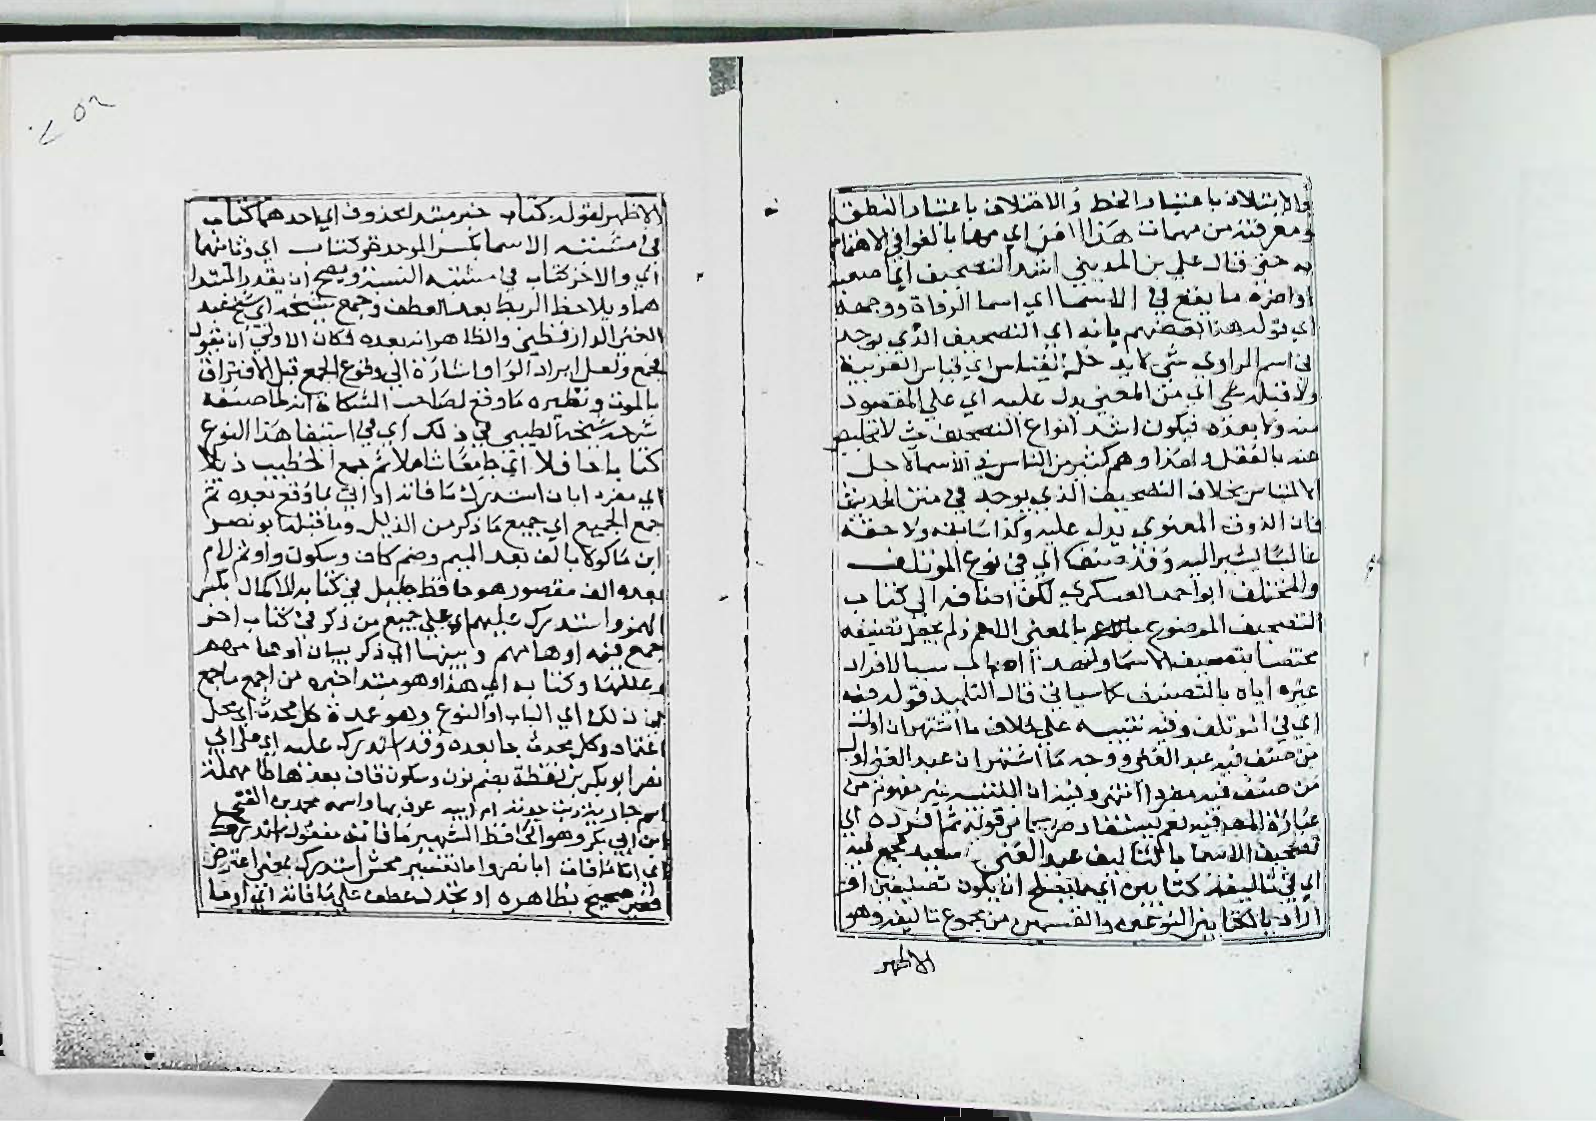 والائتلاف باعتبار الخط والاختلاف باعتبار النطق
ومعرفته من مهمات هذا الفن اي مهما بالغوا في الاهتمام
به حتى قال علي بن المديني اشد التصحيف اي اصعبه
او اضره ما يقع في الاسما اي اسما الرواة ووجهه
اي قوله هذا بعضهم بانه اي التصحيف الذي يوجد
في اسم الراوي شي لا يدخله القياس اي قياس العربية
ولا قبله شي اي من المعنى يدل عليه اي علي المقصود
منه ولا بعده فيكون اشد انواع التصحيف حيث لا تخليص
عنه بالعقل ولهذا وهم كثير من الناس في الاسما لاجل
الالتباس بخلاف التصحيف الذي يوجد في متن الحديث
فان الذوق المعنوي يدل عليه وكذا سابقه ولاحقه
غالبا يشير اليه وقد صنف اي في نوع المؤتلف
والمختلف ابو احمد العسكري لكن اضافه الى كتاب
التصحيف الموضوع بالمعنى الاعم ولم يجعل تصنيفه
مختصا بتصحيف الاسما ولقصد سببا لافراد
غيره اياه بالتصنيف كما سياتي قال التلميذ قوله فيه
اي في المؤتلف وفيه تنبيه على خلاف ما اشتهر ان اول
من صنف فيه عبد الغني ووجه ما اشتهر ان عبد الغني اول
من صنف فيه مفردا انتهى وفيه ان التنبيه غير مفهوم من
عبارة المص فيه نعم يستفاد صريحا من قوله ثم افرده اي
تصحيف الاسما بالتاليف عبد الغني بن سعيد فجمع فيه
اي في تاليفه كتابين اي مما يصلح ان يكون تصنيفين او
اراد بالكتابين النوعين والقسمين من مجموع تاليفه وهو
الاظهر
الاظهر لقوله كتاب خبر مبتدا محذوف اي احدهما كتاب
في مشتبه الاسما بكسر الموحدة وكتاب اي وثانيهما
اي والاخر كتاب في مشتبه النسبة ويصح ان يقدر المبتدا
هما ويلاحظ الربط بعد العطف وجمع شيخه اي شيخ عبد
الغني الدارقطني والظاهر انه بعده فكان الاولى ان يقول
فجمع ولعل ايراد الواو اشارة الى وقوع الجمع قبل الافتراق
بالموت ونظيره ما وقع لصاحب المشكاة انه لما صنفه
شرحه شيخه الطيبي في ذلك اي في استيفا هذا النوع
كتابا حافلا اي جامعا شاملا ثم جمع الخطيب ذيلا
اي مفرد ابان استدرك ما فاته او اتي بما وقع بعده ثم
جمع الجميع اي جميع ما ذكر من الذيل وما قبله ابو نصر
ابن ماكولا بالف بعد الميم وضم كاف وسكون واو ثم لام
بعده الف مقصور هو حافظ جليل في كتابه الاكمال بكسر
الهمز واستدرك عليهم اي على جميع من ذكر في كتاب اخر
جمع فيه اوهامهم وبينها اي ذكر بيان اوهامهم
وعللها وكتابه اي هذا وهو مبتدا خبره من اجمع ما جمع
في ذلك اي الباب او النوع وهو عمدة كل محدث اي محل
اعتماد كل محدث جا بعده وقد استدرك عليه اي على ابي
نصر ابو بكر بن نقطة بضم نون وسكون قاف بعدها طا مهملة
اسم جارية ربت جدته ام ابيه عرف بها واسمه محمد بن الغني
ابن ابي بكر وهو الحافظ الشهير ما فاته مفعول استدرك
اي ما فات ابا نصر واما تفسير محش استدرك بمعنى اعترض
فغير صحيح بظاهره او تجدد لعطف على ما فاته اي او ما